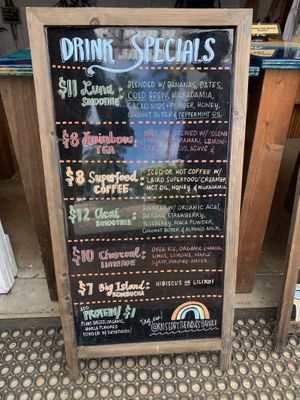 DRINK SPECIALS
$11 Luna SMOOTHIE
BLENDED W/ BANANAS, DATES,
COLD BREW, MILKADAMIA,
CACAO NIBS + POWDER, HONEY,
COCONUT BUTTER & PEPPERMINT OIL
$8 Rainbow TEA
OVER ICE, BREWED W/ 'OLENA
MAMAKI, LEMON-
HIBISCUS, AGAVE &
$8 Superfood COFFEE
ICED OR HOT COFFEE W/
LAIRD SUPERFOOD CREAMER,
MCT OIL, HONEY & MILKADAMIA
$12 Acai SMOOTHIE
BLENDED W/ ORGANIC ACAI,
BANANA, STRAWBERRY,
BLUEBERRY, MACA POWDER,
COCONUT BUTTER & ALMOND MILK
$10 Charcoal LIMEADE
OVER ICE, ORGANIC
LIMES, LEMONS, MAPLE
SYRUP, WATER
$7 Big Island KOMBUCHA
HIBISCUS OR LILIKOI
ADD PROTEIN/ $1
PLANT BASED, ORGANIC,
VANILLA FLAVORED
POWDER W/ SUPERFOODS
TAG US!